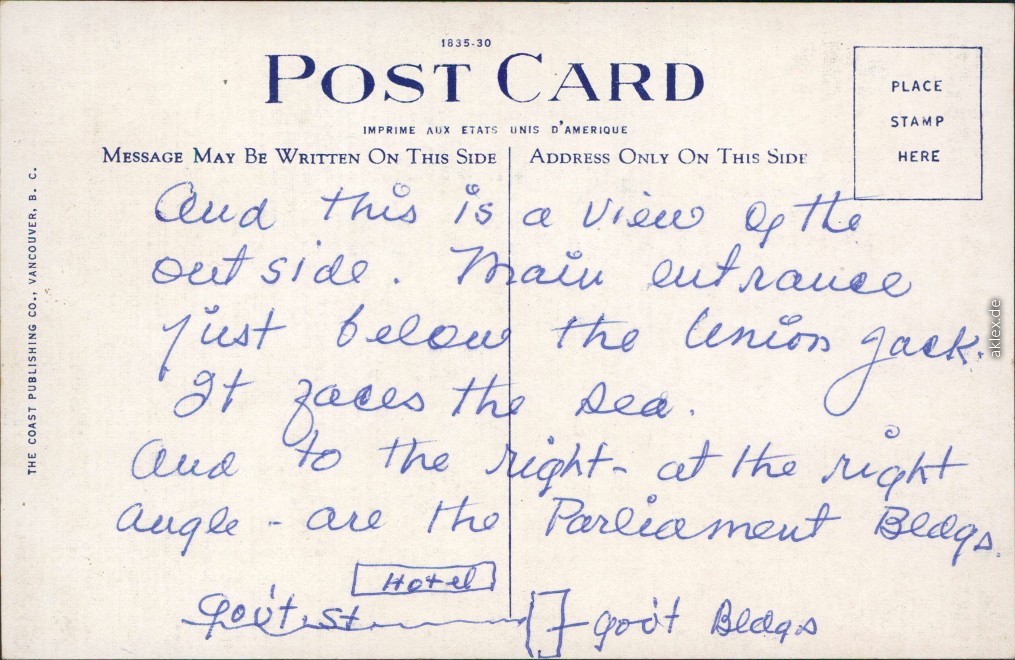 1835-30
POST CARD
IMPRIME AUX ETATS UNIS D'AMERIQUE
MESSAGE MAY BE WRITTEN ON THIS SIDE
ADDRESS ONLY ON THIS SIDE
PLACE
STAMP
HERE
And this is a view of the
outside. Main entrance
just below the Union Jack.
It faces the sea.
And to the right - at the right
angle - are the Parliament Bldgs.
Hotel
Gov't. St.
gov't Bldgs
THE COAST PUBLISHING CO., VANCOUVER, B. C.
aklex.de